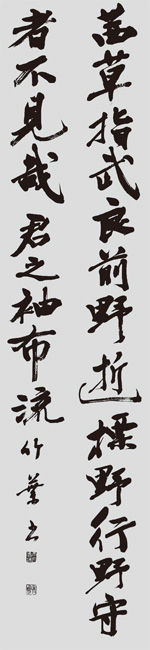 茜草指武良前野逝標野行野守
者不見哉君之袖布流竹葉書